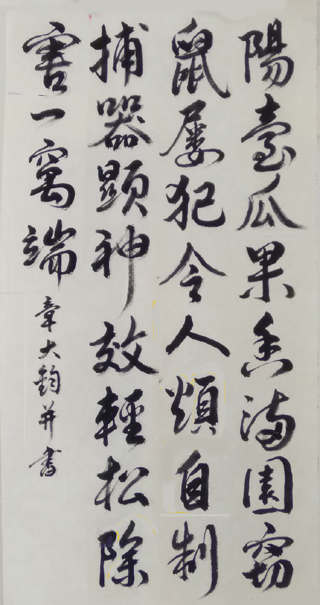 陽臺瓜果香滿園竊
鼠屢犯令人煩自制
捕器顯神效輕松除
害一窩端
章大鈞并書